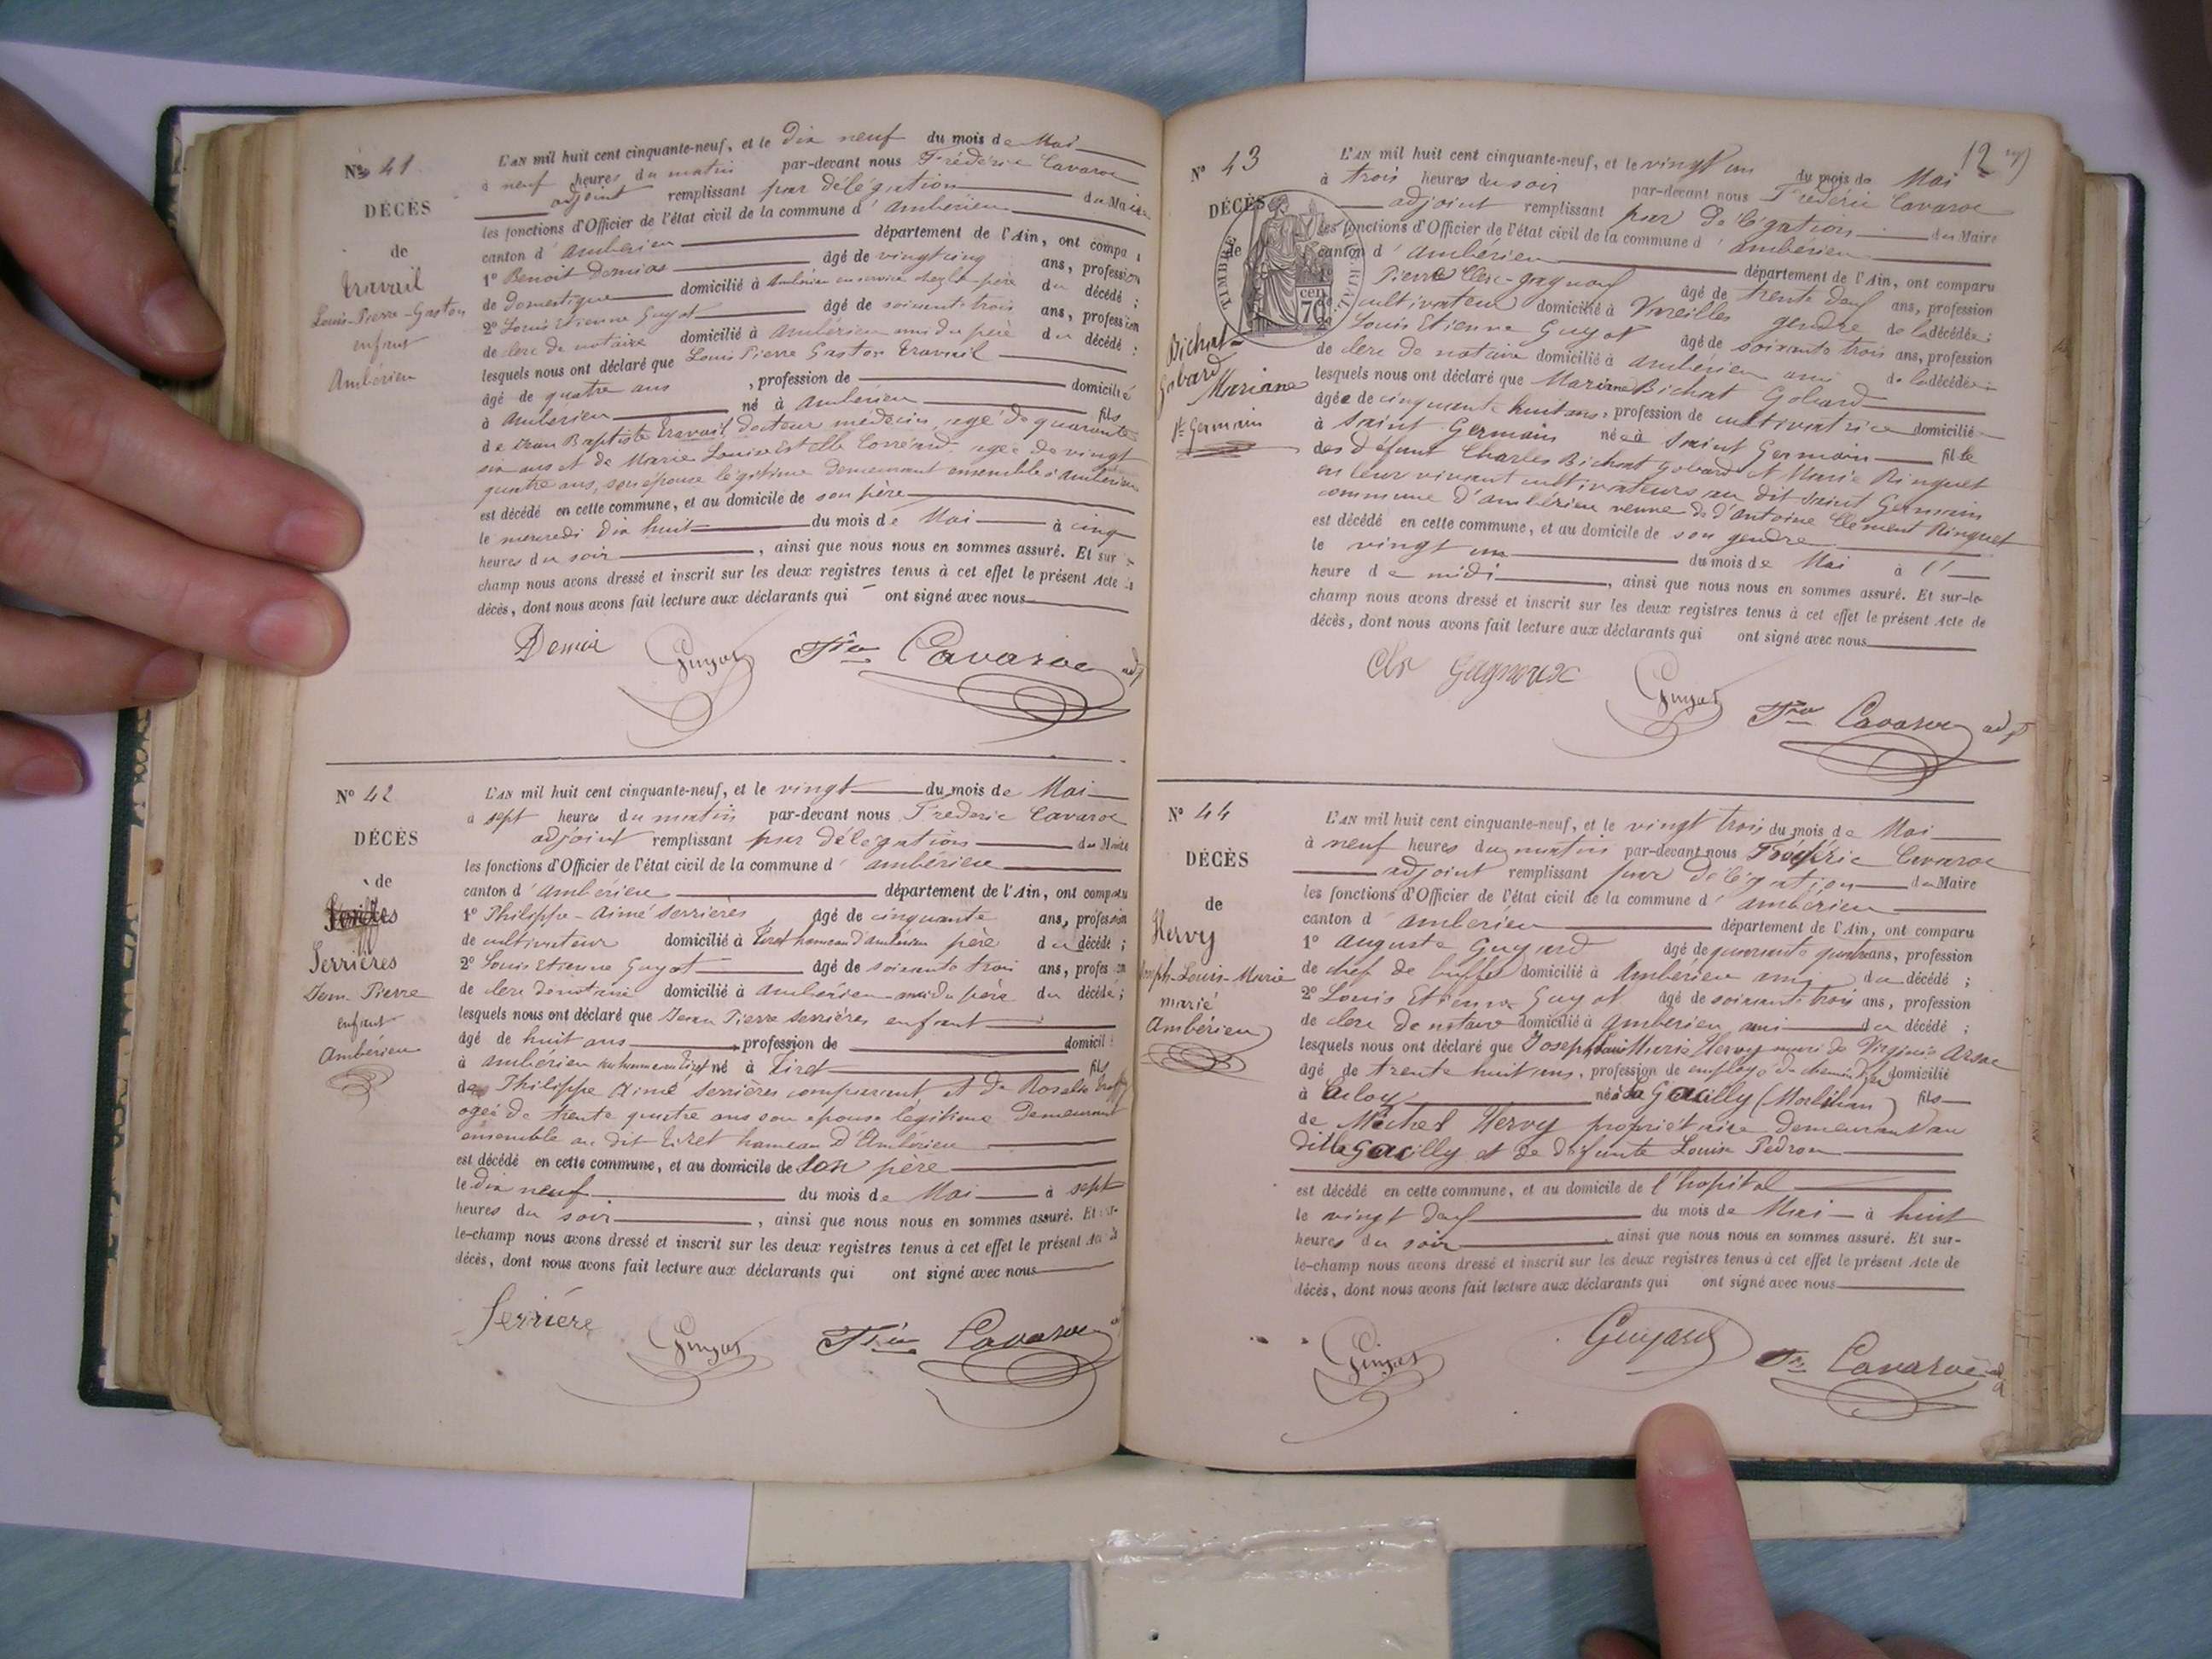 N° 41
DÉCÈS
de
Travail
Louis-Pierre-Gaston
enfant
Ambérieu
L'AN mil huit cent cinquante-neuf, et le Dix neuf du mois de Mai
à neuf heures du matin par-devant nous Frédéric Cavaroc
adjoint remplissant par délégation du Maire
les fonctions d'Officier de l'état civil de la commune d'Ambérieu
canton d'Ambérieu département de l'Ain, ont compa
1° Benoit Demias âgé de vingt cinq ans, profession
de domestique domicilié à Ambérieu en service chez le père du décédé ;
2° Louis Etienne Guyot âgé de soixante trois ans, profession
de clerc de notaire domicilié à Ambérieu ami du père du décédé ;
lesquels nous ont déclaré que Louis Pierre Gaston Travail
âgé de quatre ans , profession de domicilié
à Ambérieu né à Ambérieu fils
de Jean Baptiste Travail, docteur médecin, agé de quarante
six ans et de Marie Louise Estelle agée de vingt
quatre ans, son épouse légitime demeurant ensemble à Ambérieu
est décédé en cette commune, et au domicile de son père
le mercredi Dix huit du mois de Mai à cinq
heures du soir , ainsi que nous nous en sommes assuré. Et sur
champ nous avons dressé et inscrit sur les deux registres tenus à cet effet le présent Acte
décès, dont nous avons fait lecture aux déclarants qui ont signé avec nous
Guyot Cavaroc adj
N° 42
DÉCÈS
de
Serrières
Jean-Pierre
enfant
Ambérieu
L'AN mil huit cent cinquante-neuf, et le vingt du mois de Mai
à sept heures du matin par-devant nous Frédéric Cavaroc
adjoint remplissant par délégation du Maire
les fonctions d'Officier de l'état civil de la commune d'Ambérieu
canton d'Ambérieu département de l'Ain, ont comparu
1° Philippe-Aimé Serrières âgé de cinquante ans, profession
de cultivateur domicilié à Tiret hameau d'Ambérieu père du décédé ;
2° Louis Etienne Guyot âgé de soixante trois ans, profession
de clerc de notaire domicilié à Ambérieu ami du père du décédé ;
lesquels nous ont déclaré que Jean Pierre Serrières enfant
âgé de huit ans profession de domicil
à Ambérieu au hameau Tiret né à Tiret fils
de Philippe Aimé Serrières comparant et de Rosalie
agée de trente quatre ans son épouse légitime Demeurant
ensemble au dit Tiret hameau d'Ambérieu
est décédé en cette commune, et au domicile de son père
le Dix neuf du mois de Mai à sept
heures du soir , ainsi que nous nous en sommes assuré. Et sur-
le-champ nous avons dressé et inscrit sur les deux registres tenus à cet effet le présent Acte
décès, dont nous avons fait lecture aux déclarants qui ont signé avec nous
Serrière Guyot Cavaroc
12
N° 43
DÉCÈS
de
TIMBRE IMPÉRIAL
70 cen
Bichat-
Gobard
Mariane
St Germain
L'AN mil huit cent cinquante-neuf, et le vingt un du mois de Mai
à trois heures du soir par-devant nous Frédéric Cavaroc
adjoint remplissant par Délégation du Maire
les fonctions d'Officier de l'état civil de la commune d'Ambérieu
canton d'Ambérieu département de l'Ain, ont comparu
Pierre Clerc-gagnoux âgé de trente deux ans, profession
cultivateur domicilié à Vareilles gendre de la décédée ;
Louis Etienne Guyot âgé de soixante trois ans, profession
de clerc de notaire domicilié à Ambérieu ami de la décédée
lesquels nous ont déclaré que Mariane Bichat Gobard
âgée de cinquante huit ans, profession de cultivatrice domicilié
à Saint Germain née à Saint Germain fille
des Défunt Charles Bichat Gobard et Marie Ringuet
en leur vivant cultivateurs au dit Saint Germain
commune d'Ambérieu veuve de d'Antoine Clément Ringuet
est décédé en cette commune, et au domicile de son gendre
le vingt un du mois de Mai à l'
heure de midi , ainsi que nous nous en sommes assuré. Et sur-le-
champ nous avons dressé et inscrit sur les deux registres tenus à cet effet le présent Acte de
décès, dont nous avons fait lecture aux déclarants qui ont signé avec nous
Clr Gagnoux Guyot Cavaroc adj
N° 44
DÉCÈS
de
Hervy
Joseph-Louis-Marie
marié
Ambérieu
L'AN mil huit cent cinquante-neuf, et le vingt trois du mois de Mai
à neuf heures du matin par-devant nous Frédéric Cavaroc
adjoint remplissant par délégation du Maire
les fonctions d'Officier de l'état civil de la commune d'Ambérieu
canton d'Ambérieu département de l'Ain, ont comparu
1° Auguste Guyard âgé de quarante quatre ans, profession
de chef de buffet domicilié à Ambérieu ami du décédé ;
2° Louis Etienne Guyot âgé de soixante trois ans, profession
de clerc de notaire domicilié à Ambérieu ami du décédé ;
lesquels nous ont déclaré que Joseph Louis Marie Hervy mari de Virginie
âgé de trente huit ans, profession de employé du chemin de fer domicilié
à né à la Gacilly (Morbihan) fils
de Michel Hervy propriétaire demeurant au
dit la Gacilly et de défunte Louise Pédron
est décédé en cette commune, et au domicile de l'hopital
le vingt deux du mois de Mai à huit
heures du soir , ainsi que nous nous en sommes assuré. Et sur-
le-champ nous avons dressé et inscrit sur les deux registres tenus à cet effet le présent Acte de
décès, dont nous avons fait lecture aux déclarants qui ont signé avec nous
Guyot Guyard Cavaroc